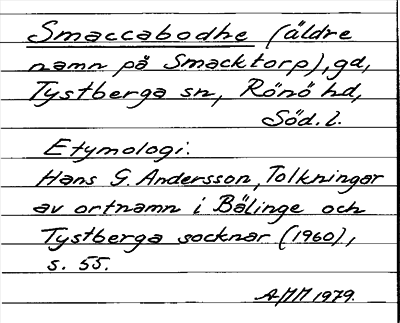 Smaccabodhe (äldre
namn på Smacktorp), gd,
Tystberga sn, Rönö hd,
Söd. l.
Etymologi.
Hans G. Andersson, Tolkningar
av ortnamn i Bälinge och
Tystberga socknar (1960),
s. 55.
AMM 1979.